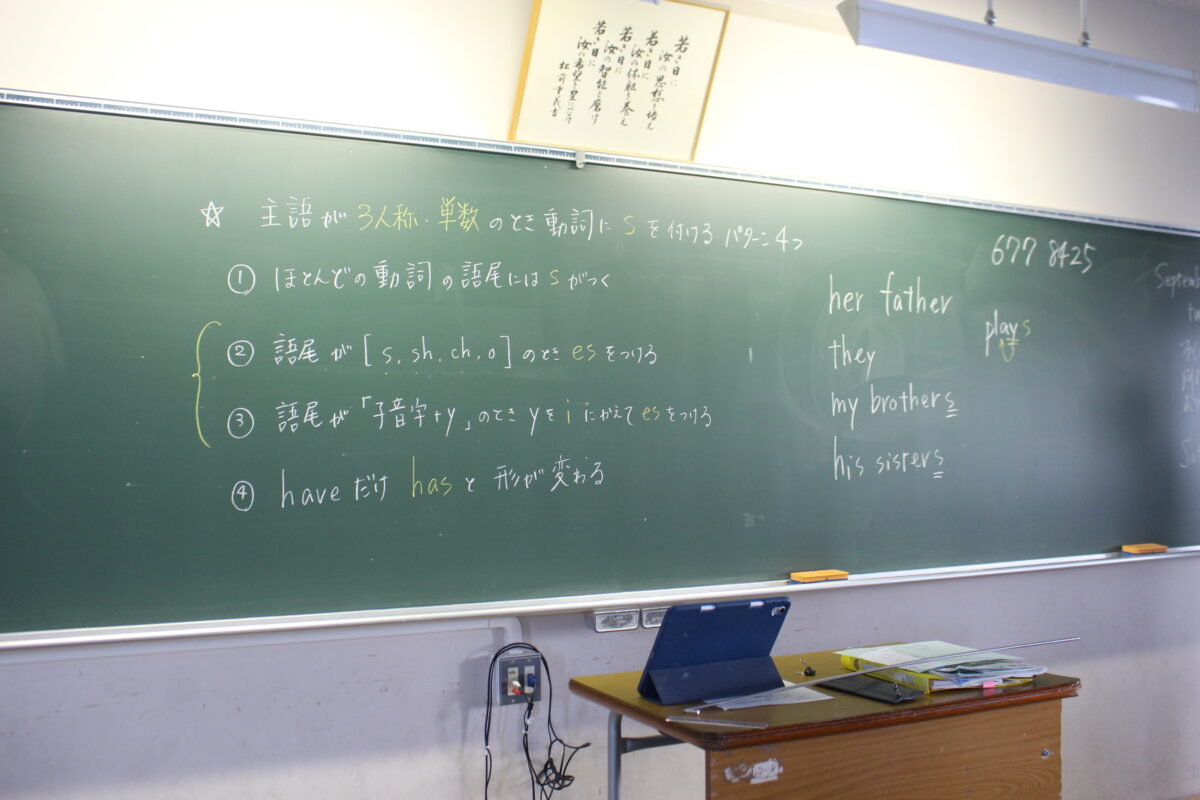 若き日に
汝の思想を培え
若き日に
汝の体躯を養え
若き日に
汝の智能を磨け
若き日に
汝の希望を星につなげ
松前重義書
☆ 主語が3人称・単数のとき動詞にsを付けるパターン4つ
① ほとんどの動詞の語尾にはsがつく
② 語尾が[s, sh, ch, o]のときesをつける
③ 語尾が「子音字+y」のときyをiにかえてesをつける
④ haveだけhasと形が変わる
677 8425
her father
plays
they
my brothers
his sisters